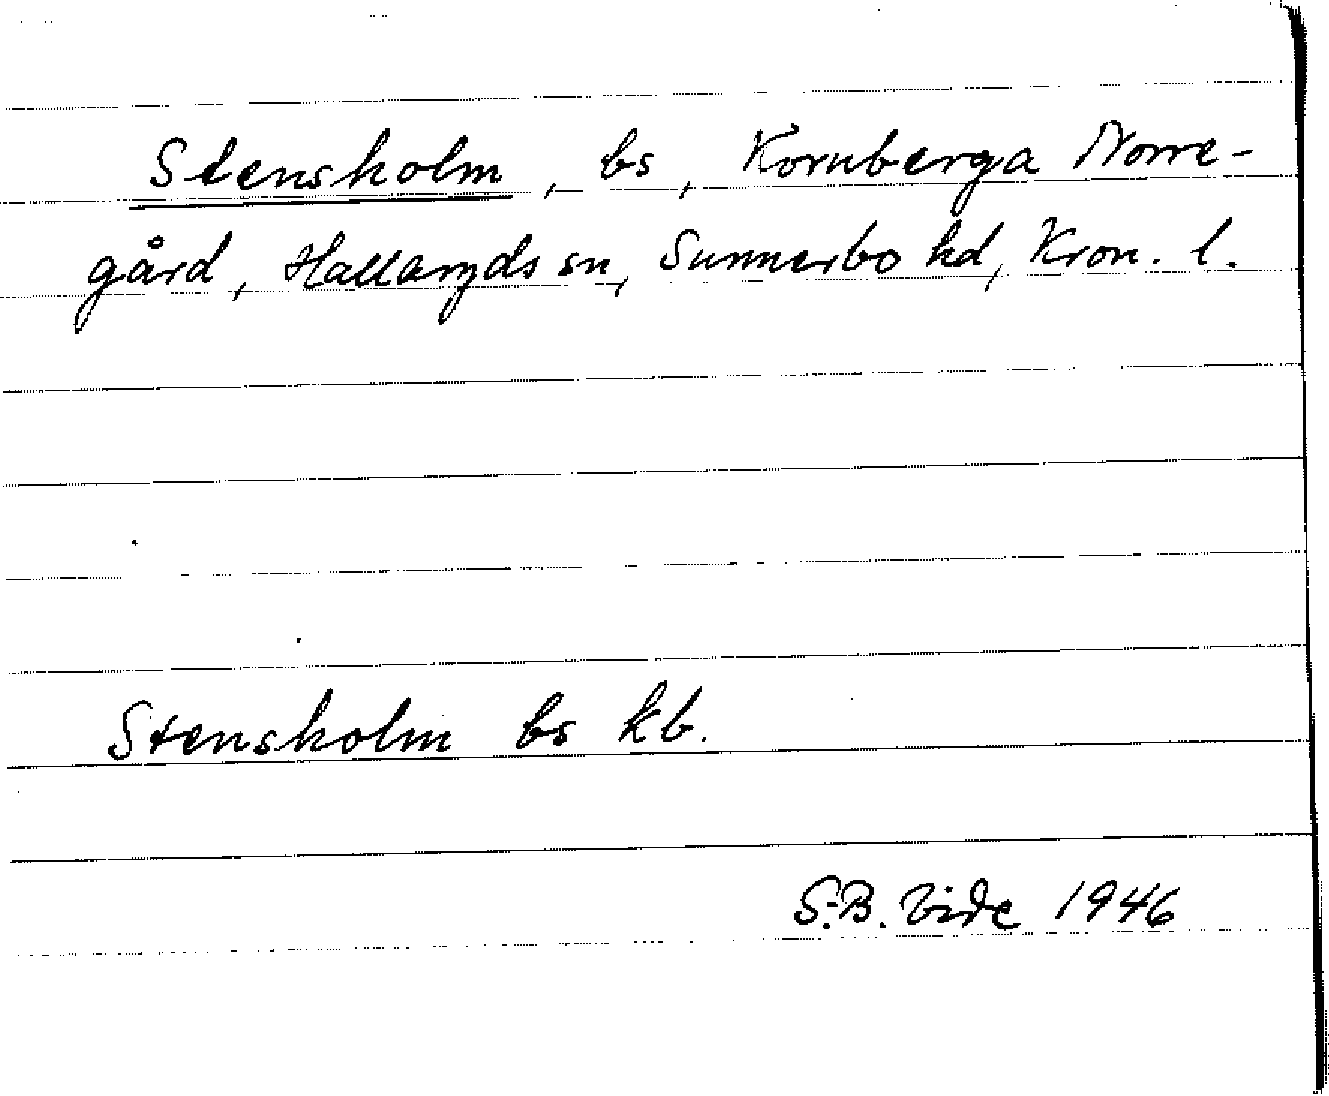 Stensholm, bs, Kornberga Norre-
gård, Hallaryds sn, Sunnerbo hd, Kron. l.
Stensholm bs kb.
S.B. Vide 1946